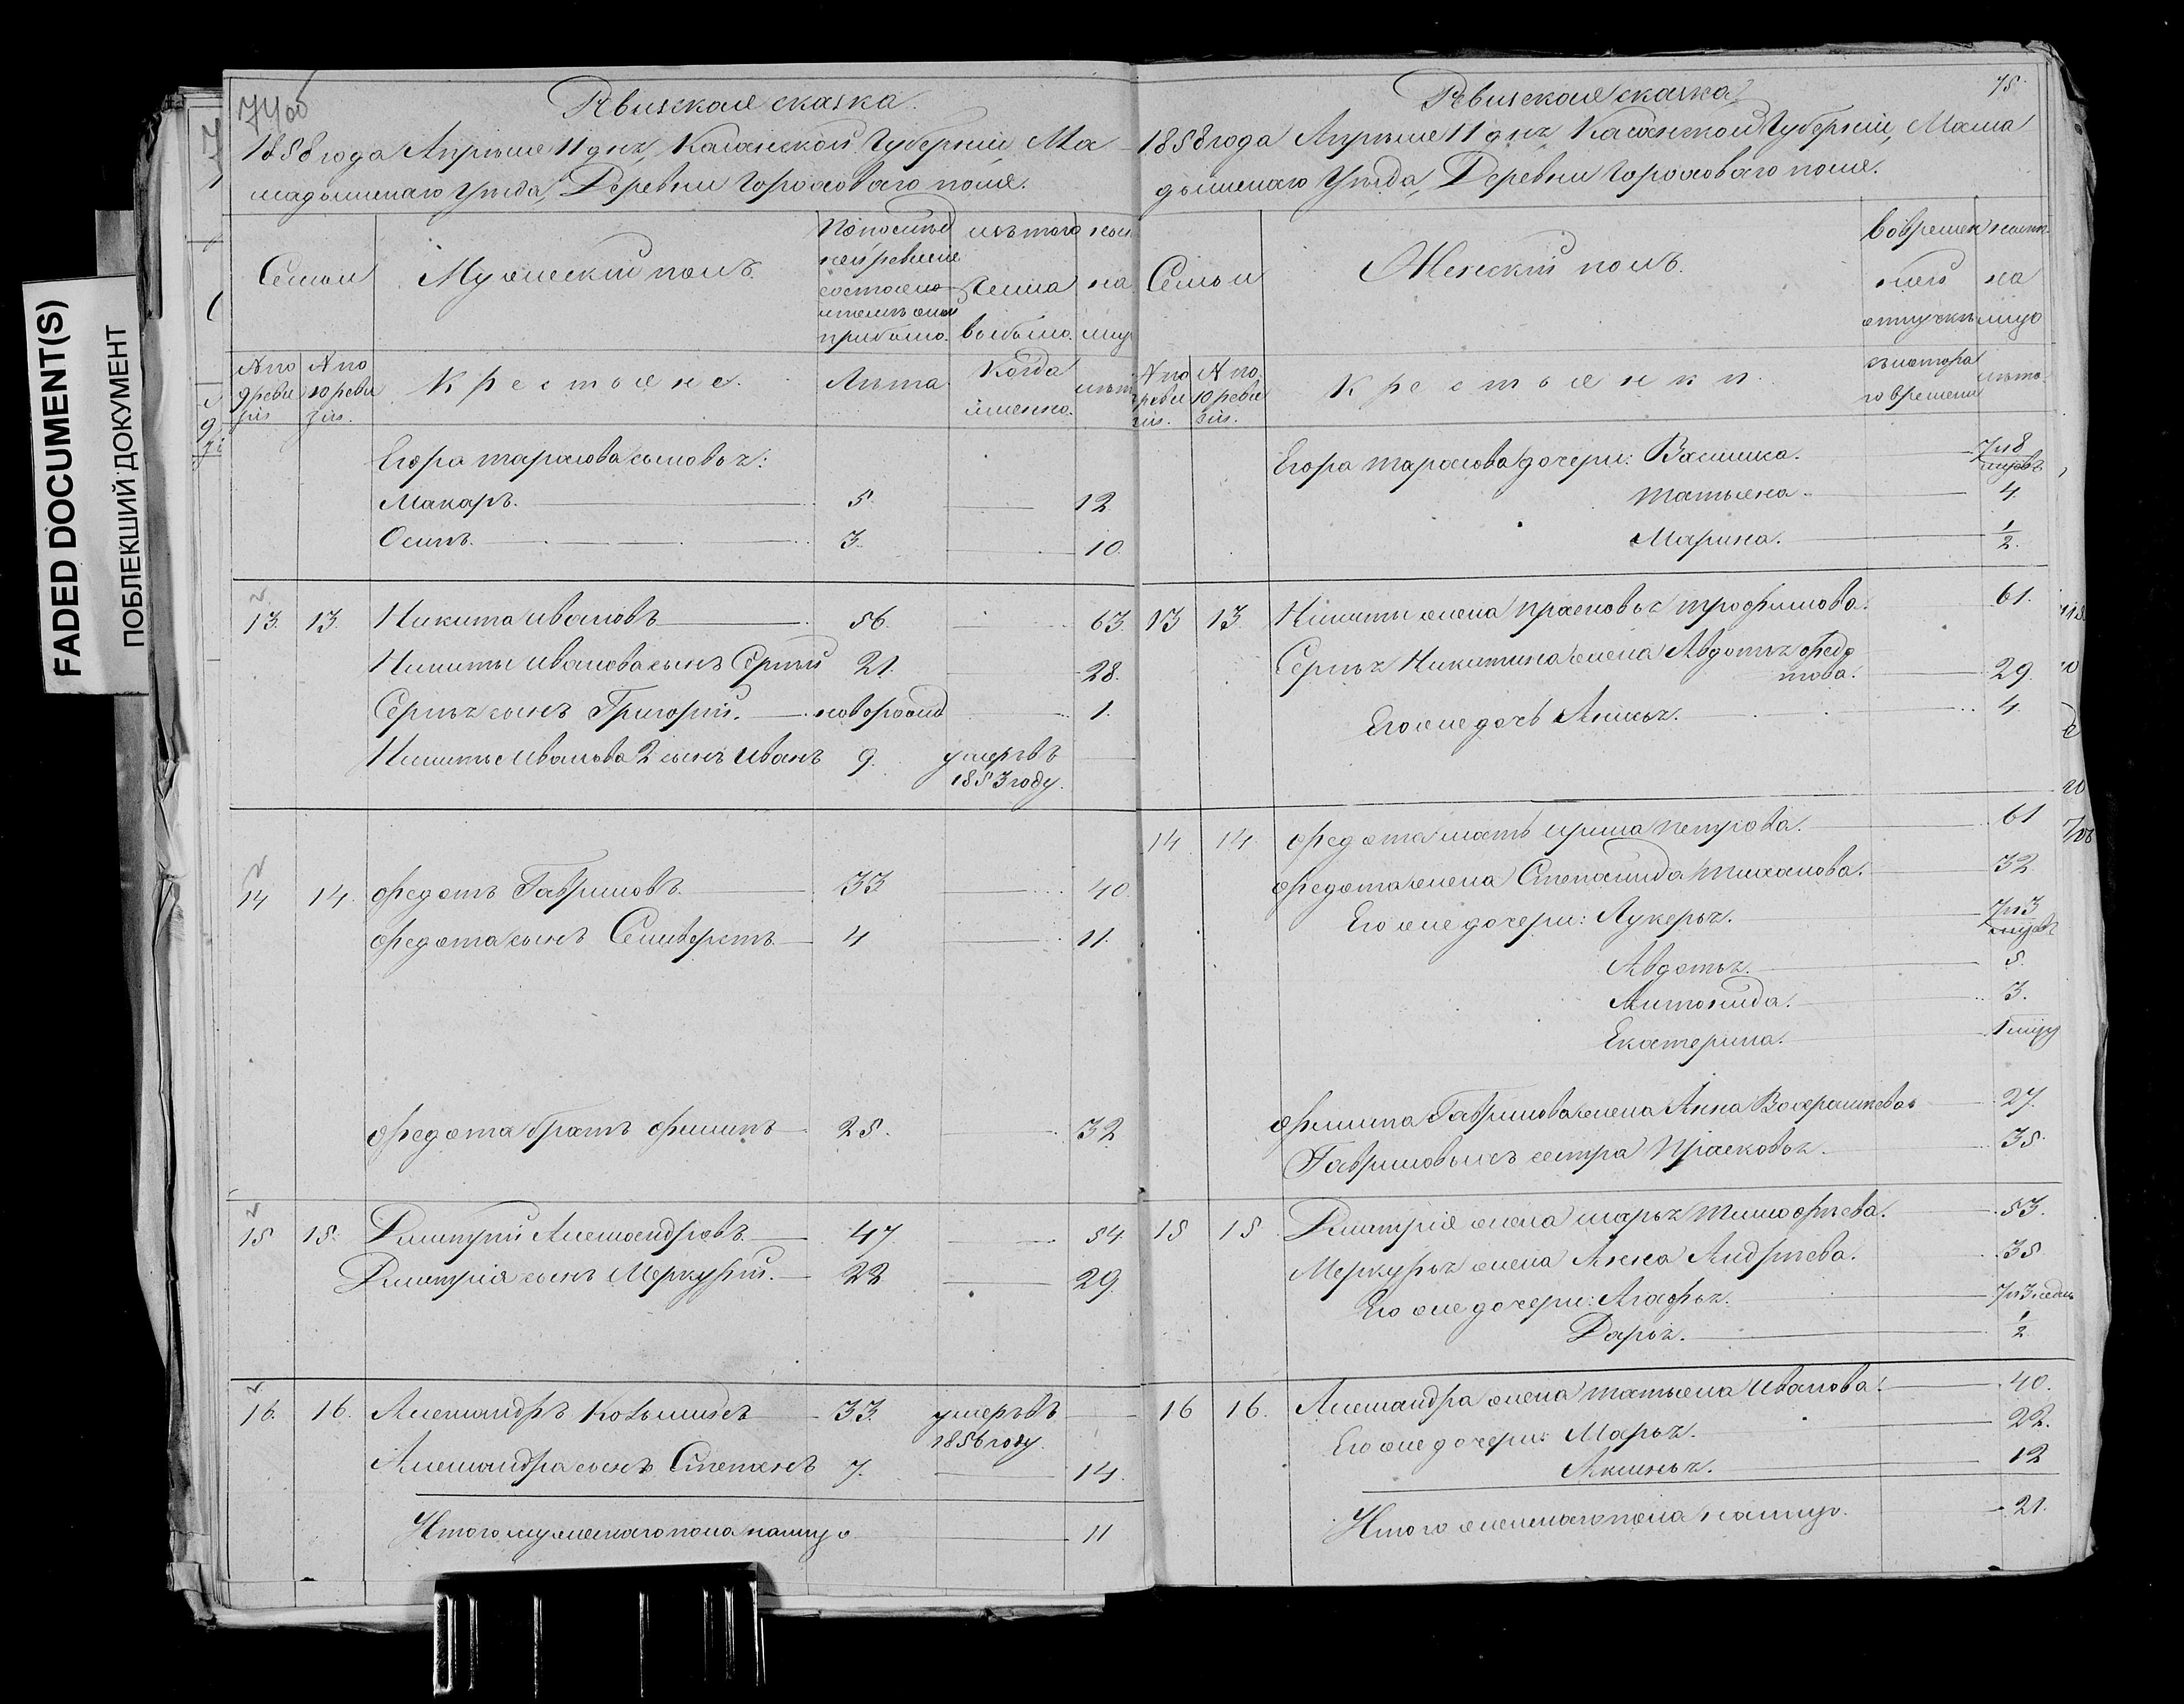 FADED DOCUMENT(S)
ПОБЛЕКШИЙ ДОКУМЕНТ
74об
Ревизская сказка.
1858 года Апреля 11 дня, Казанской Губерніи, Ма
мадышскаго Уезда, Деревни Гороховаго поля.
Семьи
Мужескій полъ.
По послед
ней ревизіи
состояло
и после оной
прибыло.
изъ того
числа
выбыло.
ныне
на
лицо
№ по
9 реви
зіи
№ по
10 реви
зіи.
Крестьяне.
Лета
Когда
именно.
летъ
Егора Тарасова сыновья:
Макаръ. 5. 12
Осипъ. 3. 10.
13. 13. Никита Ивановъ 56. 63.
Никиты Иванова сынъ Сергей 21. 28.
Сергея сынъ Григорій. новорожд 1.
Никиты Иванова 2 сынъ Иванъ 9. умеръ въ
1853 году.
14 14. Федотъ Гавриловъ 33 40.
Федота сынъ Селиверстъ 4 11.
Федота братъ Филипъ 25. 32.
15 15. Дмитрій Александровъ 47. 54.
Дмитрія сынъ Меркурій. 22 29.
16. 16. Александръ Козьминъ 33. умеръ въ
1856 году.
Александра сынъ Степанъ 7. 14.
Итого мужескаго пола на лицо 11
75.
Ревизская сказка
1858 года Апреля 11 дня, Казанской Губерніи, Мама
дышскаго Уезда, Деревни Гороховаго поля.
Семьи
Женскій полъ.
во времен
ной
отлучке
ныне
на
лицо
№ по
9 реви
зіи.
№ по
10 реви
зіи.
Крестьянки.
съ котора
го времени
лета
Егора Тарасова дочери: Василиса. 7 и 8
месяцовъ
Татьяна. 4.
Марина. 1/2.
13 13 Никиты жена Прасковья Трофимова. 61.
Сергея Никитина жена Авдотья Федо
това. 29.
Его же дочь Анисья. 4
14 14. Федота мать Ирина Петрова. 61
Федота жена Степанида Тиханова. 32
Его же дочери: Лукерья. 7 и 3
месяц
Авдотья. 5.
Антонида. 3.
Екатерина. 1 месяц
Филипа Гаврилова жена Анна 27.
Гавриловыхъ сестра Прасковья. 35.
15 15 Дмитрія жена Марья Тимофеева. 53.
Меркурья жена Анна Андреева. 35
Его же дочери: Агафья. 7 и 3 недель
Дарья. 1/2
16 16. Александра жена Татьяна Иванова. 40.
Его же дочери: Марья. 22.
Аксинья. 12
Итого женскаго пола на лицо. 21.